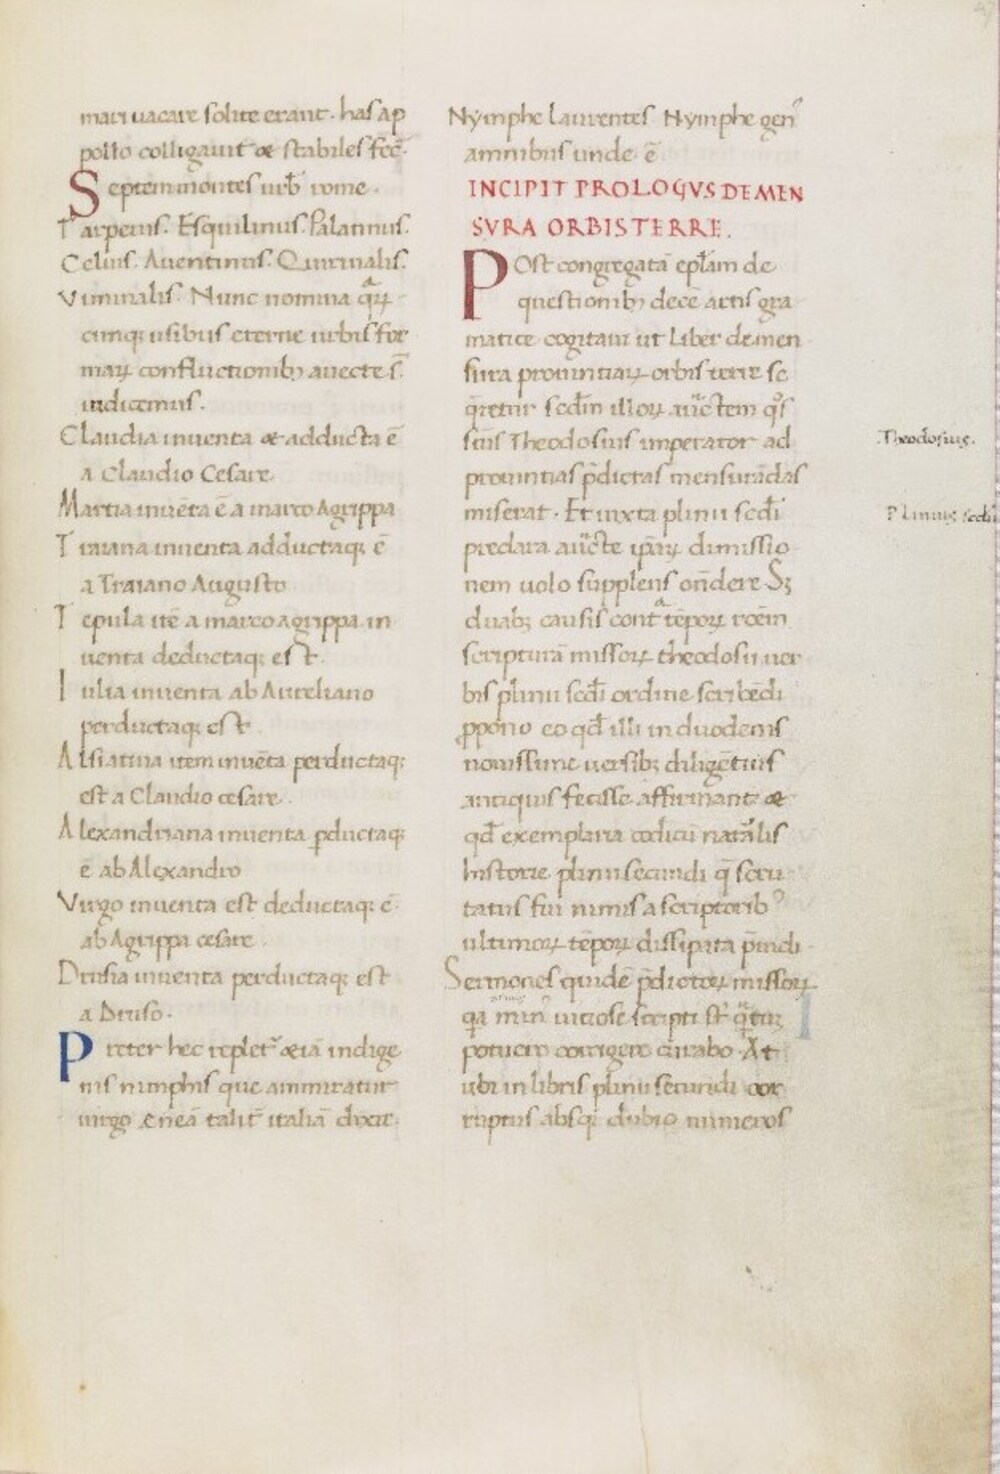 mari uacare solite erant. has ap
pollo colligauit et stabiles fec̄.
Septem montes urb̄ rome.
Tarpeius. Esquilinus. Palatinus.
Celius. Auentinus. Quirinalis.
Viminalis. Nunc nomina aq̄ꝝ
cunq; usibus eterne urbis for
maꝝ confluctionib; auecte s̄
indicemus.
Claudia inuenta et adducta ē
a Claudio Cesare
Martia inuēta ē a marco Agrippa
Traiana inuenta adductaq; ē
a Traiano Augusto
Tepula itē a marco agrippa in
uenta deductaq; est.
Iulia inuenta ab Aureliano
perductaq; est
Alsiatina item inuēta perductaq;
est a Claudio cesare.
Alexandriana inuenta ꝑductaq;
ē ab Alexandro
Virgo inuenta est deductaq; ē
ab Agrippa cesare.
Drusia inuenta perductaq; est
a Druso.
Preter hec replet᷑ etiā indige
nis nimphis que ammiratur
uirgo Eneā talit̄ italiā dixit.
Nymphe laurentes Nymphe gen᾽
amnibus unde ē
INCIPIT PROLOGVS DE MEN
SVRA ORBIS TERRE.
Post congregatā ep̄lam de
questionib; decē artis gra
matice cogitaui ut liber de men
sura prouintiaꝝ orbis terre se
q̄retur scd̄m illoꝝ auctem q°s
sc̄us Theodosius imperator ad
prouintias p̄dictas mensurādas
miserat. Et iuxta plinii scd̄i
preclara aucte ip̄aꝝ dimissio
nem uolo supplens ondere S;
duab; causis contᵃ tēpoꝝ roēm
scripturā missoꝝ theodosii uer
bis plinii scd̄i ordine scribēdi
ꝓpono eo qd̄ illi in duodenis
nouissime uersib; diligētius
antiquis fecisse affirmant et
qd̄ exemplaria codicū nat᷑alis
historie plinii secundi q̄ scru
tatus fui nimis a scriptorib᾽
ultimoꝝ tēpoꝝ dissipata p̄uidi.
Sermones quidē p̄dictoꝝ missoꝝ
qa min᾽ uitiose scripti st̄ q̄tū
potuero corrigere curabo. At
ubi in libris plinii secundi cor
ruptus absq; dubio numeros
Theodosius.
Plinius secūd